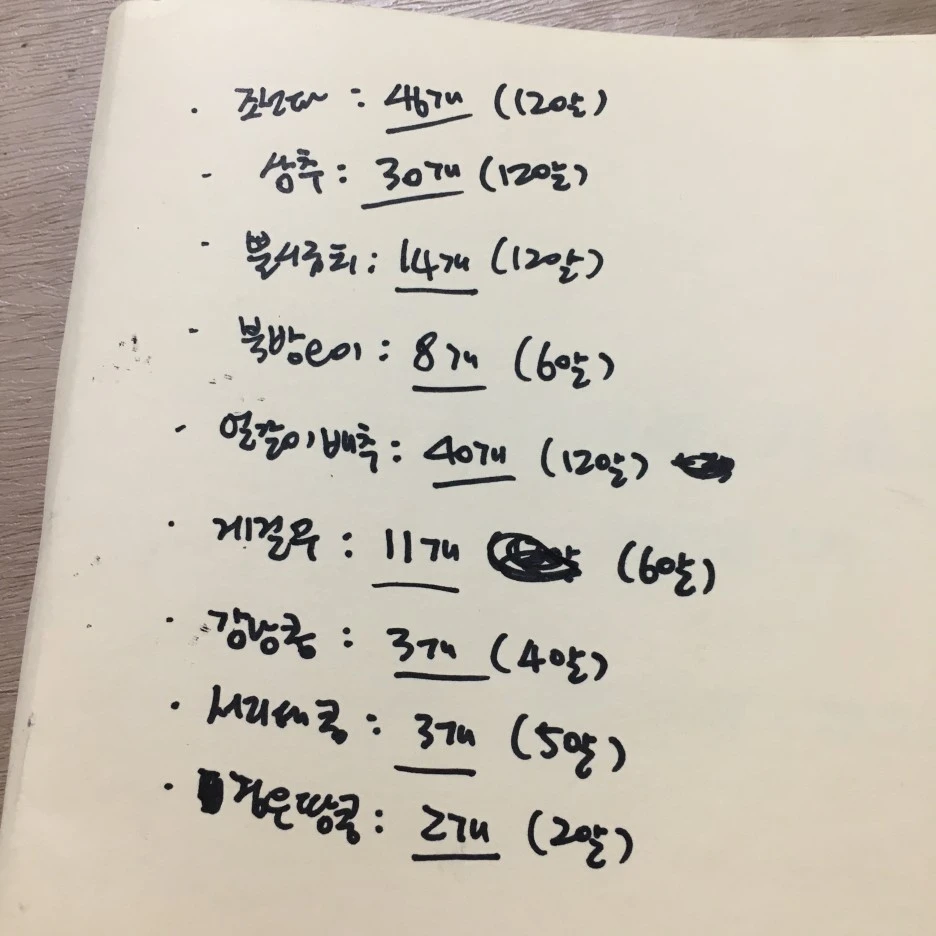 · 조선파 : 46개 (12알)
- 상추 : 30개 (12알)
· 뿔시금치 : 14개 (12알)
- 북방e이 : 8개 (6알)
- 얼갈이배추 : 40개 (12알)
· 게걸무 : 11개 (6알)
· 강낭콩 : 3개 (4알)
· 서리태콩 : 3개 (5알)
· 검은땅콩 : 2개 (2알)